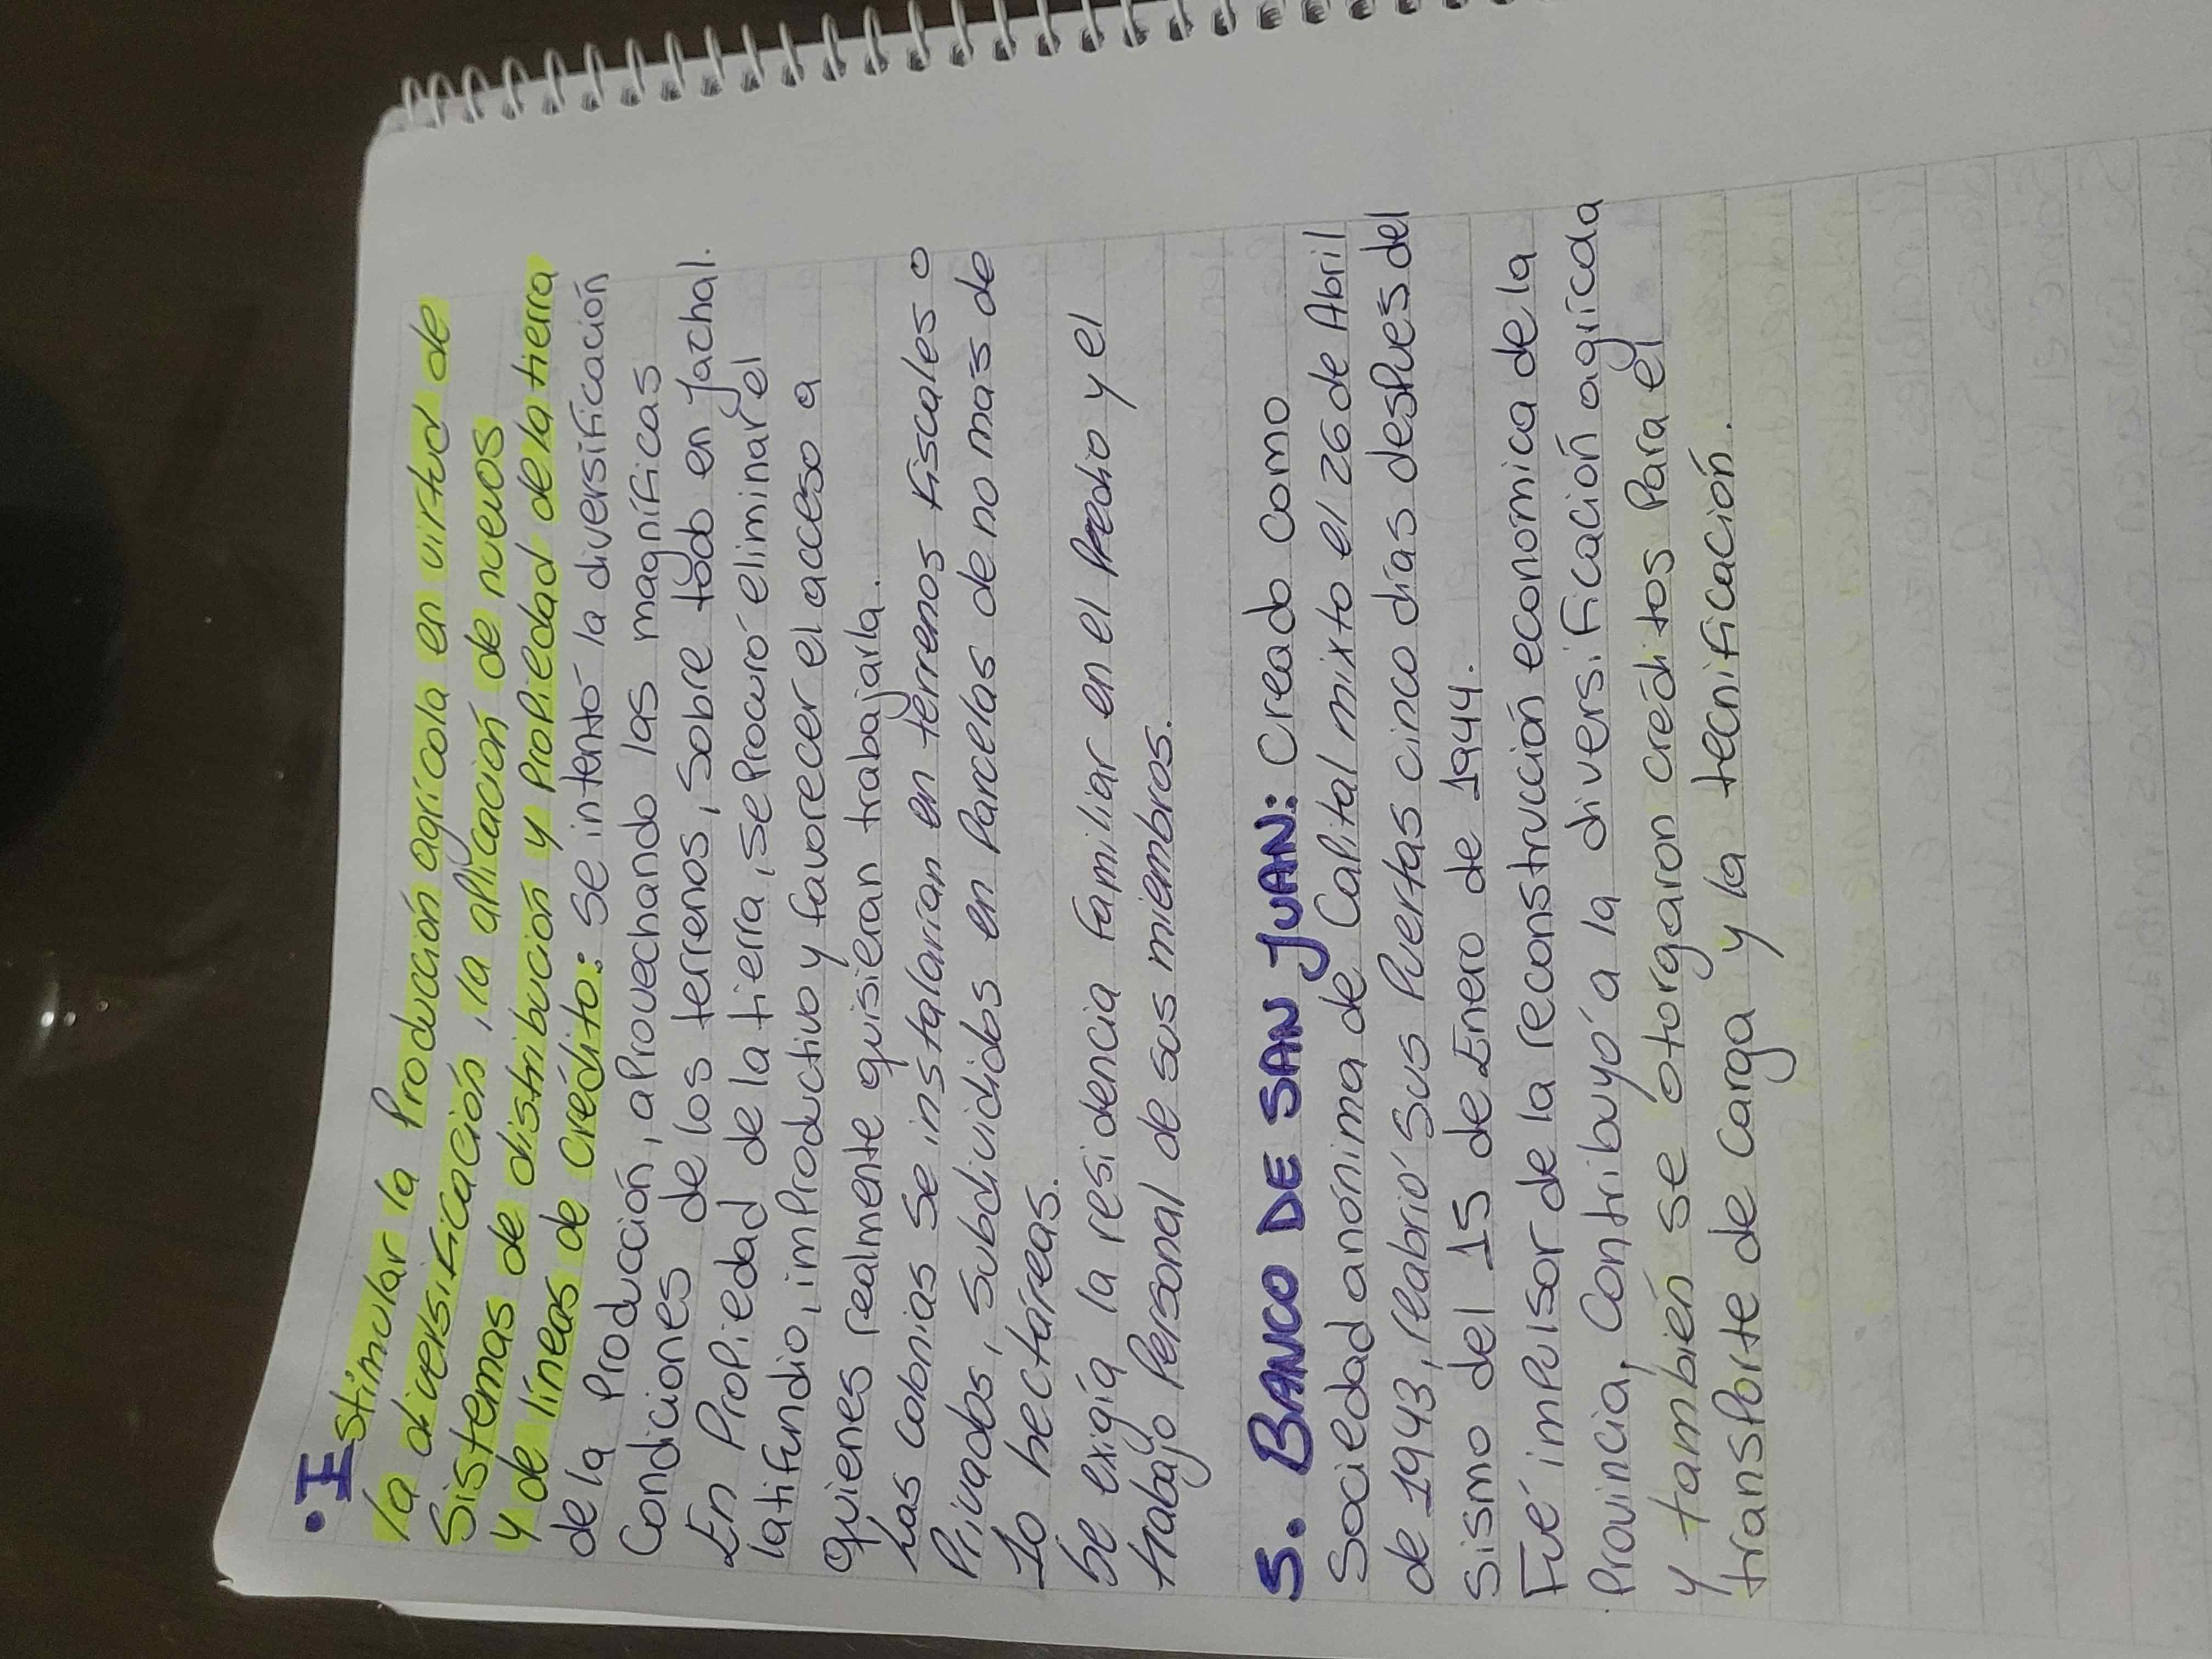 • Estimular la Producción agrícola en virtud de
la diversificación, la aplicación de nuevos
Sistemas de distribución y Propiedad de la tierra
y de líneas de crédito: Se intentó la diversificación
de la Producción, aprovechando las magníficas
Condiciones de los terrenos, Sobre todo en Jachal.
En Propiedad de la tierra, se Procuró eliminar el
latifundio, improductivo y favorecer el acceso a
quienes realmente quisieran trabajarla.
Las colonias se instalarían en terrenos Fiscales o
Privados, Subdivididos en Parcelas de no mas de
10 hectáreas.
Se exigía la residencia Familiar en el Predio y el
trabajo Personal de sus miembros.
5. BANCO DE SAN JUAN: Creado como
Sociedad anónima de Capital mixto el 26 de Abril
de 1943, reabrió Sus Puertas cinco días después del
Sismo del 15 de Enero de 1944.
Fué impulsor de la reconstrucción económica de la
Provincia, Contribuyó a la diversificación agrícada
y también se otorgaron créditos Para el
transporte de carga y la tecnificación.